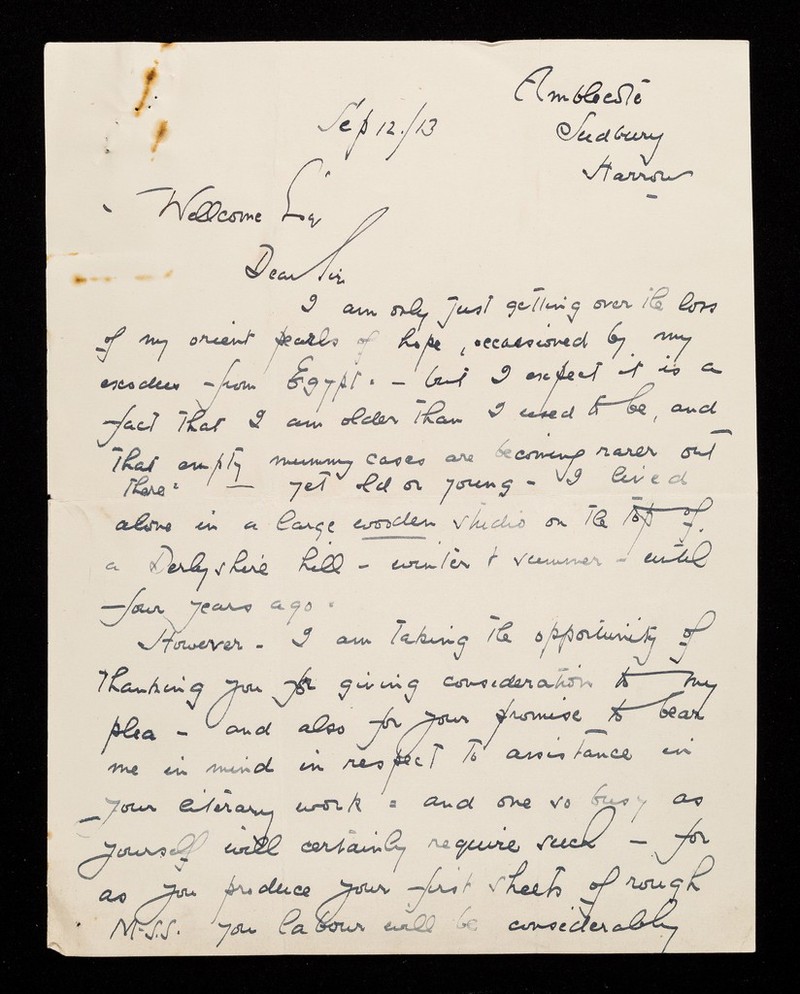 Amblecote
Sudbury
Harrow
Sep 12./13
Wellcome Esq
Dear Sir
I am only just getting over the loss
of my orient pearls of hope, occasioned by my
exodus from Egypt. - but I expect it is a
fact that I am older than I used to be, and
that empty mummy cases are becoming rarer out
there. - yet old or young - I lived
alone in a large wooden studio on the top of
a Derbyshire hill - winter & summer - until
four years ago.
However - I am taking the opportunity of
thanking you for giving consideration to my
plea - and also for your promise to bear
me in mind in respect to assistance in
your literary work = and one so busy as
yourself will certainly require such - for
as you produce your first sheets of rough
M.S.S. you labour will be considerably